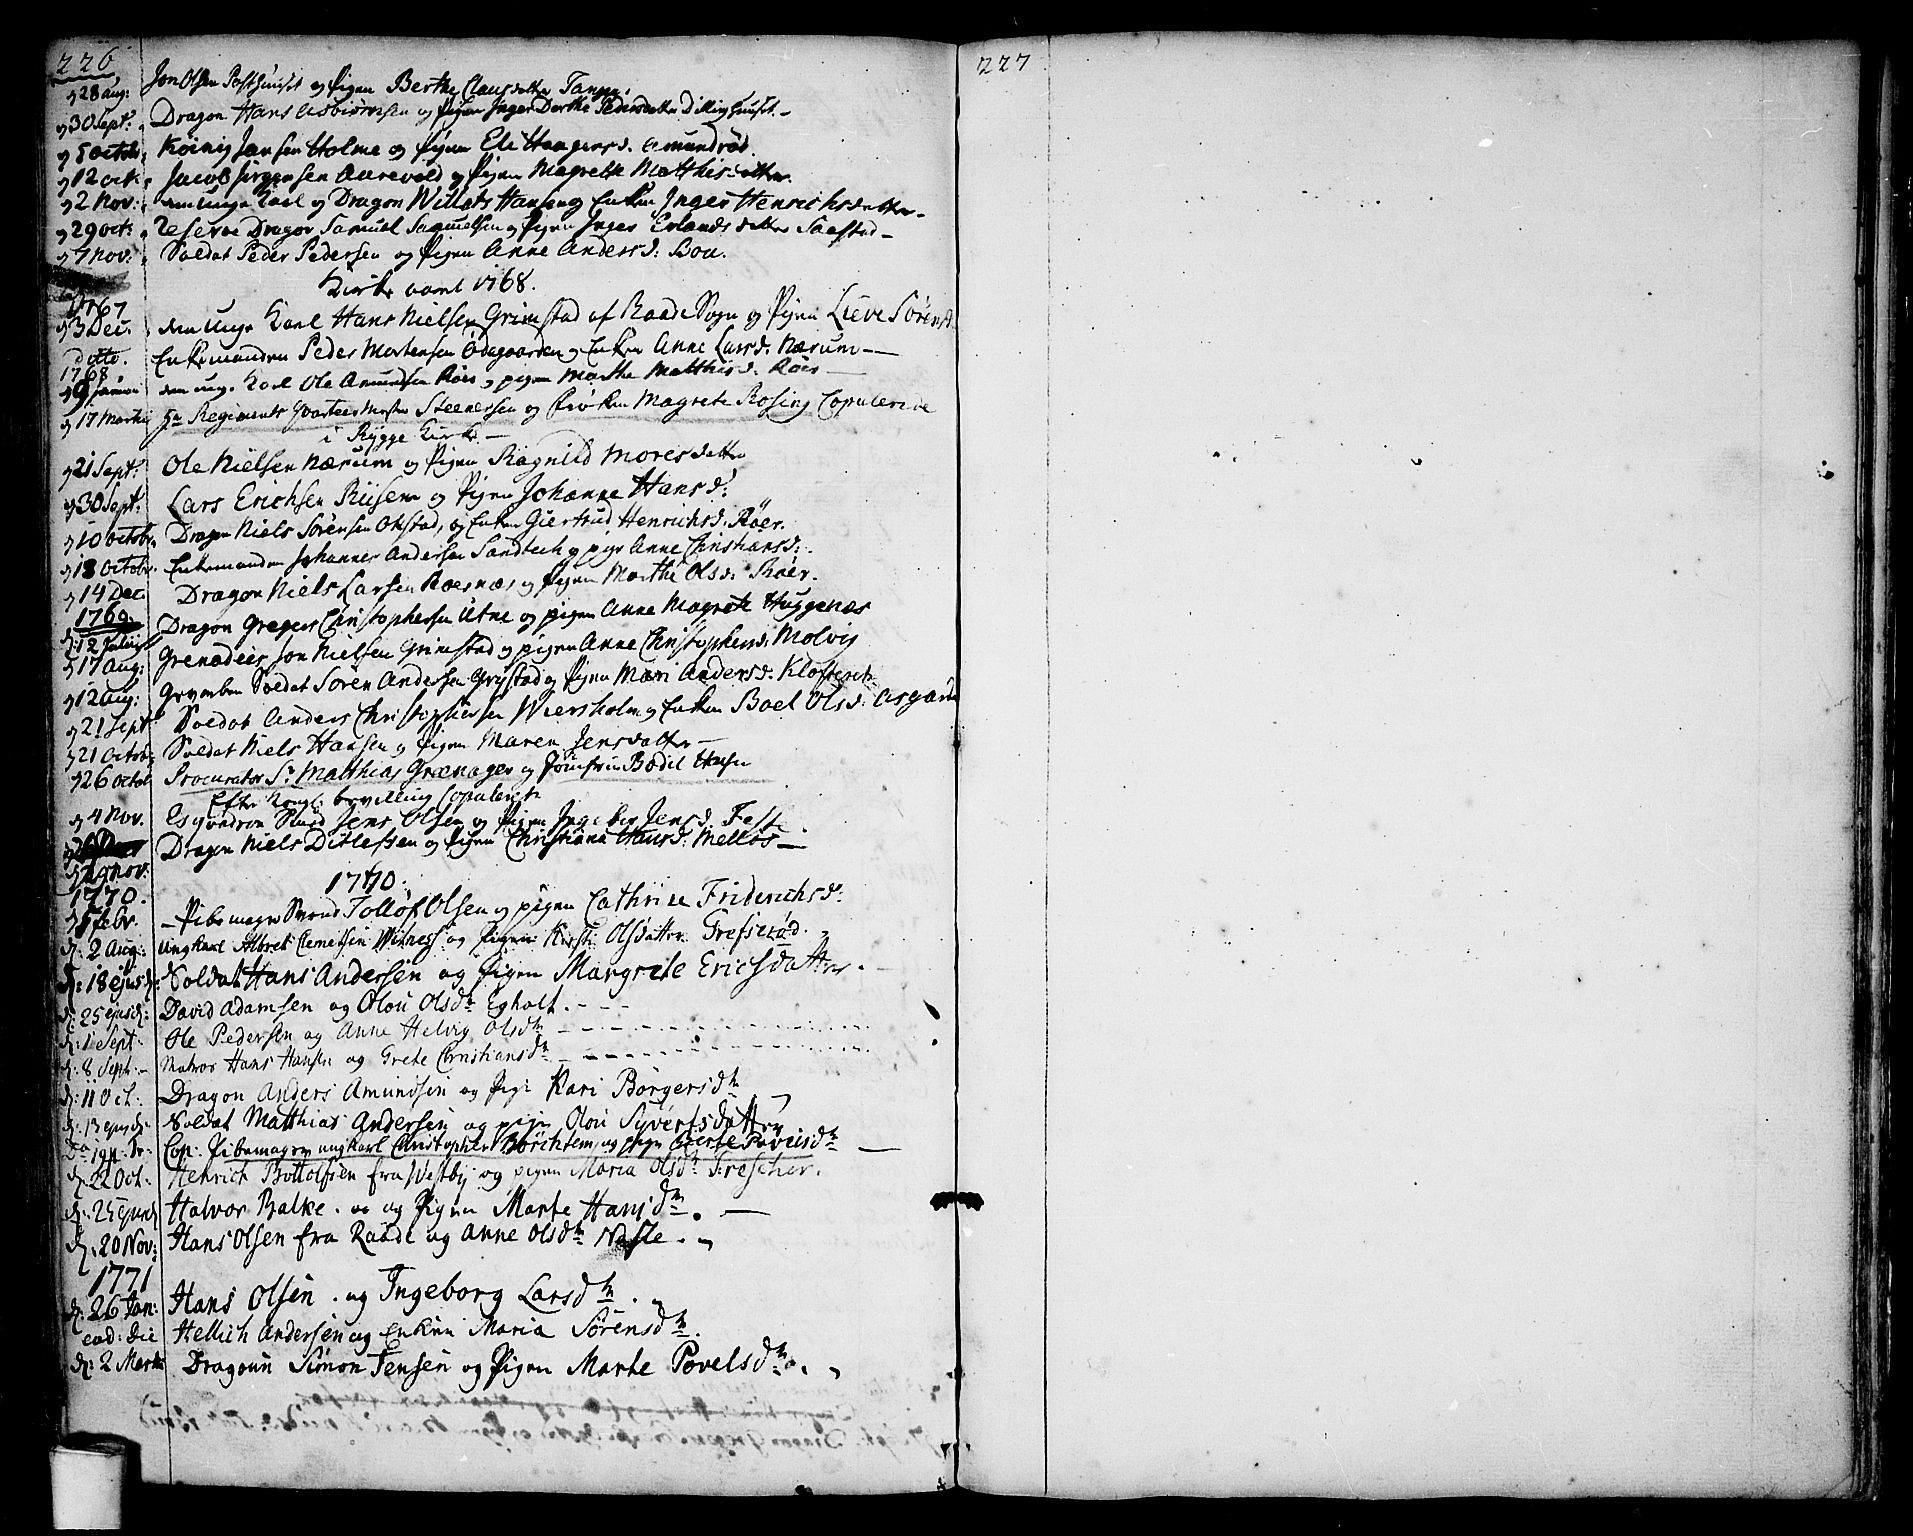 226
d 28 aug: Jon Olsen Posthuuset og Pigen Berthe Clausdatter Tangen.
d 30 Sept: Dragon Hans Asbiørnsen og Pigen Inger Dorthe Pedersdatter Dillinghuset.
d 5 octob: Køinig Jansen Holme og Pigen Ele Haagensd. Amundrød.
d 12 oct. Jacob Jørgensen Aarevold og Pigen Magrethe Matthisdatter.
d 2 Nov: den unge Karl og Dragon Willats Hansen og Enken Inger Henrichsdatter
d 29 oct: Reserve Dragon Samuel Samuelsen og Pigen Inger Erlandsdatter Saastad
d 7 nov: Soldat Peder Pedersen og Pigen Anne Andersd: Boa.
Kirke aaret 1768.
1767
d 3 Dec. den unge Karl Hans Nielsen Grimstad af Raade Sogn og Pigen Lieve Sørensd
ditto. Enkemanden Peder Mortensen Ødegaarden og Enken Anne Larsd: Nærum
1768
d 9 Januar den unge Karl Ole Amundsen Røer og pigen Marthe Matthisd: Røer
d 17 Martii Sr Regiments Qvarteermester Steenersen og Frøken Magrete Rosing Copulerede
i Rygge Kirke
d 21 Sept: Ole Nielsen Nærum og Pigen Ragnild Moresdatter
d 30 Sept: Lars Erichsen Riisen og Pigen Johanne Hansd:
d 10 octobr. Dragon Niels Sørensen Okstad, og Enken Giertrud Henrichsd. Røer.
d 18 octobr. Enkemanden Johannes Andersen Sandtech og pige Anne Christiansd:
d 14 Dec: Dragon Niels Larsen Roesnæs og Pigen Marthe Olsd: Røer.
1769.
d: 12 Julii Dragon Greger Christophersen Utne og pigen Anne Magrete Huggenæs
d 17 aug: Grenadeer Jon Nielsen Grimstad og pigen Anne Christophersd: Molvig
d 12 aug: Gevorben Soldat Søren Andersen Grystad og Pigen Mari Andersd: Kloster
d 21 Sept: Soldat Anders Christophersen Wiersholm og Enken Boel Olsd: Asgaard
d 21 Octob: Soldat Niels Hansen og Pigen Maren Jensdatter
d 26 octob: Procurator Sr Matthias Grænager og Jomfrue Bodil Huser
Efter Kongl: bevilling Copulerede
d 4 Nov. Esqvadron Smed Jens Olsen og Pigen Ingebor Jensd: Feste
d 29 nov: Dragon Niels Ditlefsen og Pigen Christiana Hansd: Melløs
1770.
1770.
d 5 Febr. Pibemager Svend Tolløf Olsen og pigen Cathrine Friderichsd:
d: 2 Aug: ungkarl Albret Clemetsen Witness og Pigen Kirsti Olsdatter Grefserød.
d: 18 ejusd: Soldat Hans Andersen og Pigen Margrete Ericsdatter.
d: 25 ejusd: David Adamsen og Olou Olsdtr Egholt.
d: 1 Sept: Ole Pedersen og Anne Helvig Olsdtr
d: 8 Sept: Matros Hans Hansen og Grete Christiansdtr
d: 11 Oct. Dragon Anders Amundsen og Pige Kari Børgersdtr
d: 13 ejusd: Soldat Matthias Andersen og pigen Olou Syvertsdatter
Cop: Pibemager ungkarl Christopher Børchtem og pige Gierte Povelsdtr
d: 22 Oct. Henrich Bottolfsen fra Westby og pigen Maria Olsdtr Frescher.
d: 25 ejusd Halvor Balke. og Pigen Marte Hansdtr.
d. 20 Nov: Hans Olsen fra Raade og Anne Olsdtr Nasle.
1771
d: 26 Jan: Hans Olsen. og Ingeborg Larsdtr.
eod: Die Hellich Andersen og Enken Maria Sørensdtr.
d: 2 Marti Dragoun Simon Jensen og Pigen Marte Povelsdtr.
227